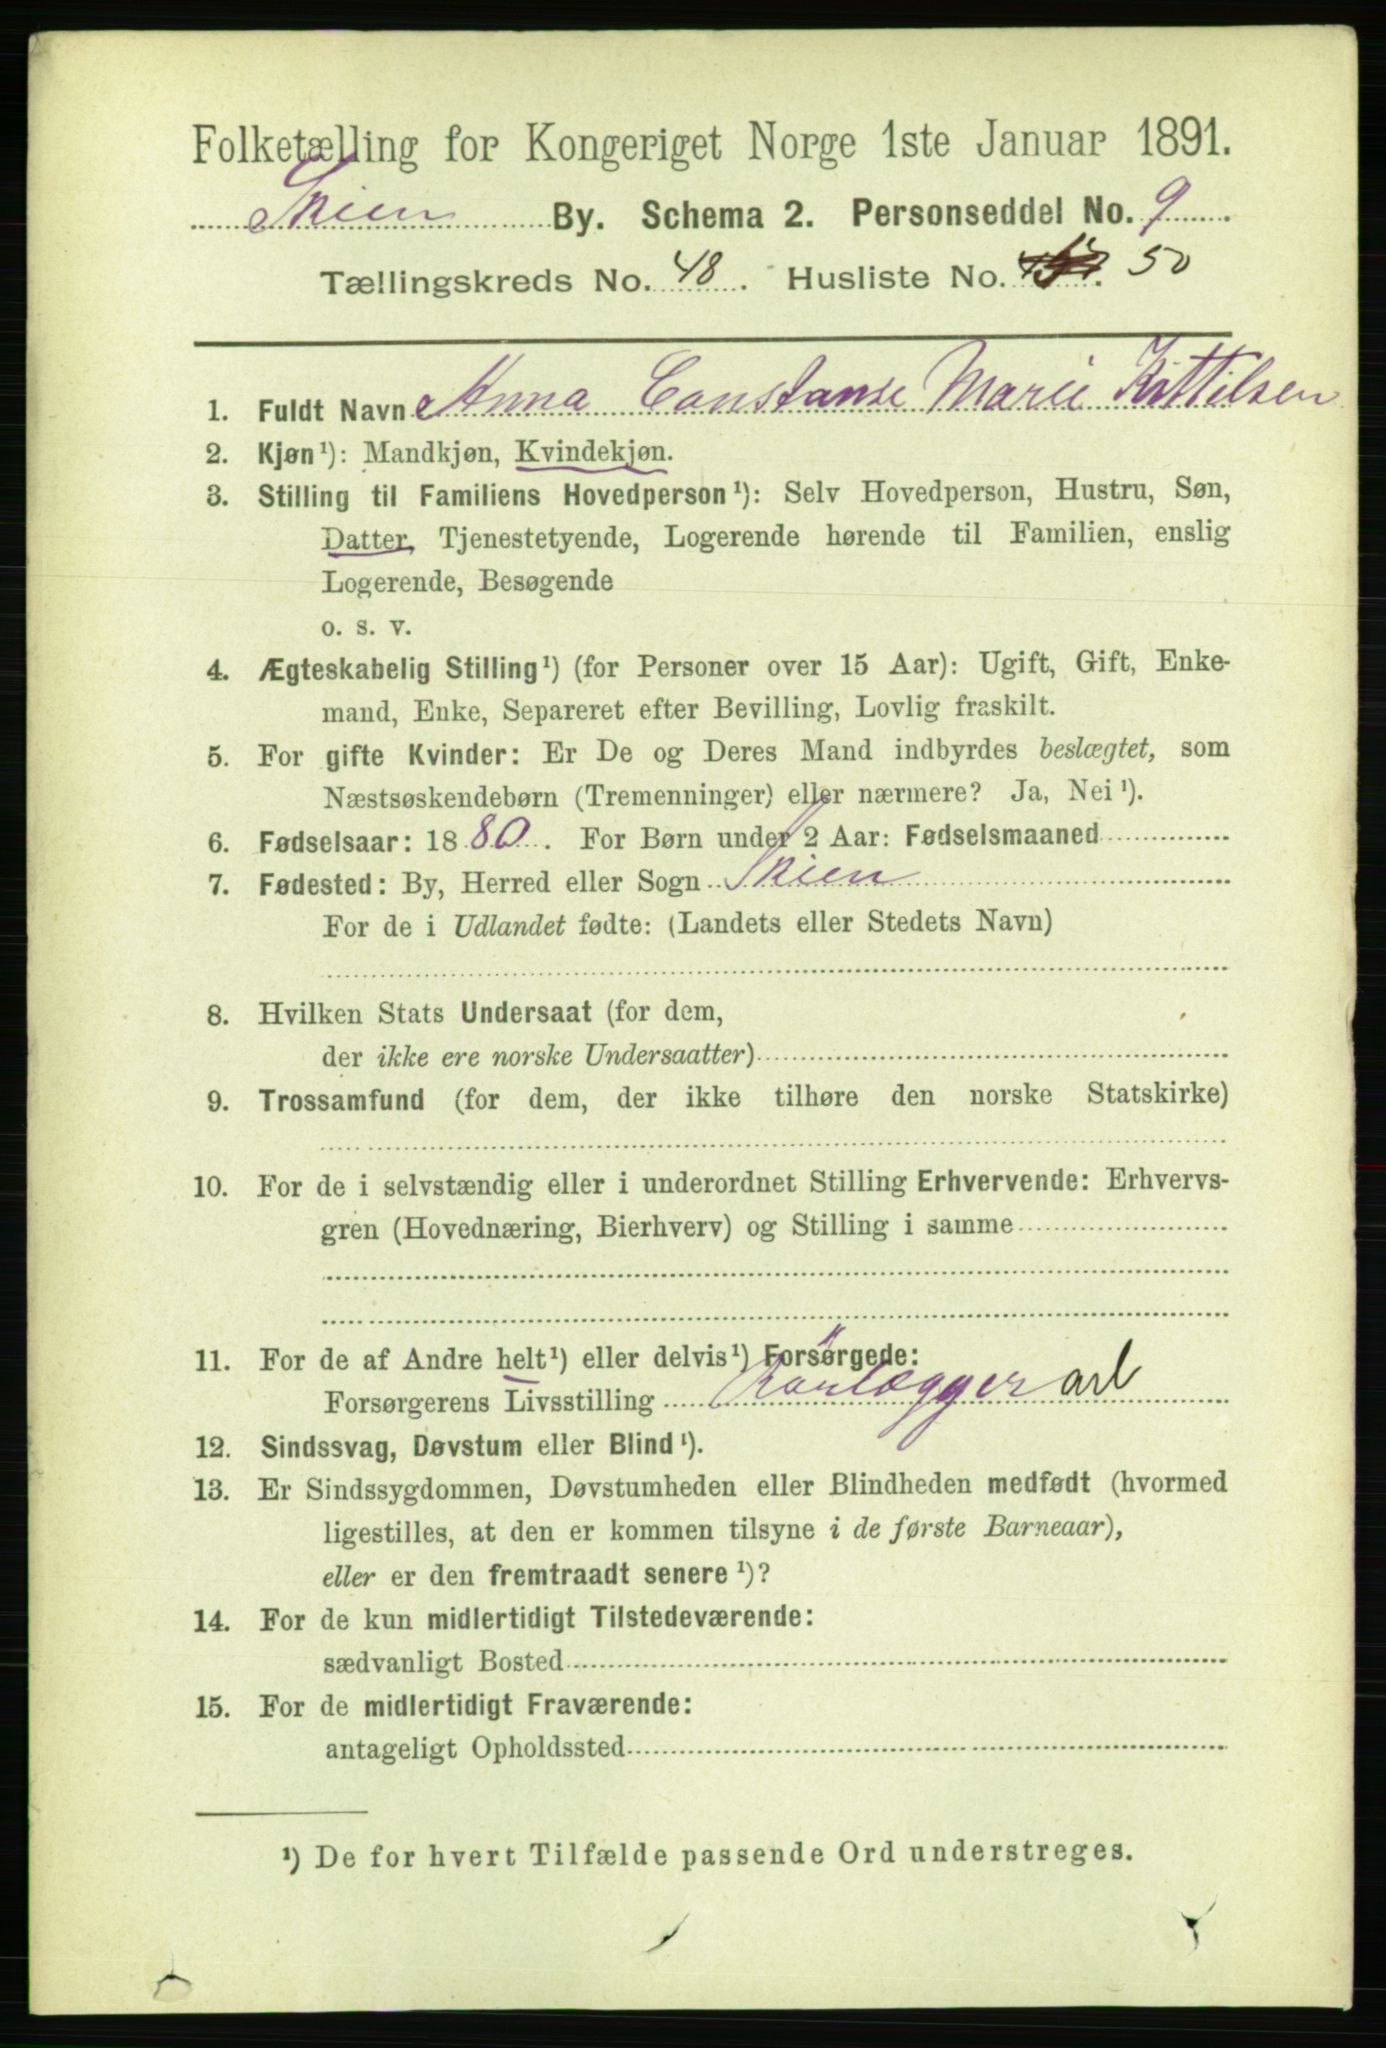 Folketælling for Kongeriget Norge 1ste Januar 1891.
Skien By. Schema 2. Personseddel No. 9
Tællingskreds No. 48. Husliste No. 50
1. Fuldt Navn Anna Constanse Marie Kittilsen
2. Kjøn¹): Mandkjøn, Kvindekjøn.
3. Stilling til Familiens Hovedperson¹): Selv Hovedperson, Hustru, Søn,
Datter, Tjenestetyende, Logerende hørende til Familien, enslig
Logerende, Besøgende
o. s. v.
4. Ægteskabelig Stilling¹) (for Personer over 15 Aar): Ugift, Gift, Enke-
mand, Enke, Separeret efter Bevilling, Lovlig fraskilt.
5. For gifte Kvinder: Er De og Deres Mand indbyrdes beslægtet, som
Næstsøskendebørn (Tremenninger) eller nærmere? Ja, Nei¹).
6. Fødselsaar: 1880. For Børn under 2 Aar: Fødselsmaaned
7. Fødested: By, Herred eller Sogn Skien
For de i Udlandet fødte: (Landets eller Stedets Navn)
8. Hvilken Stats Undersaat (for dem,
der ikke ere norske Undersaatter)
9. Trossamfund (for dem, der ikke tilhøre den norske Statskirke)
10. For de i selvstændig eller i underordnet Stilling Erhvervende: Erhvervs-
gren (Hovednæring, Bierhverv) og Stilling i samme
11. For de af Andre helt¹) eller delvis¹) Forsørgede:
Forsørgerens Livsstilling Rörlægger arb
12. Sindssvag, Døvstum eller Blind¹).
13. Er Sindssygdommen, Døvstumheden eller Blindheden medfødt (hvormed
ligestilles, at den er kommen tilsyne i de første Barneaar),
eller er den fremtraadt senere¹)?
14. For de kun midlertidigt Tilstedeværende:
sædvanligt Bosted
15. For de midlertidigt Fraværende:
antageligt Opholdssted
¹) De for hvert Tilfælde passende Ord understreges.